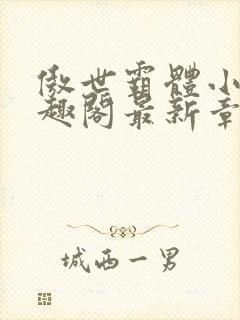 傲世霸體小
趣閣最新章
城西一男